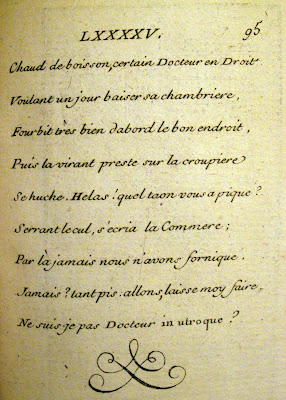 LXXXXV. 95
Chaud de boisson, certain Docteur en Droit
Voulant un jour baiser sa chambriere,
Fourbit très bien dabord le bon endroit,
Puis la virant preste sur la croupiere
Se huche. Helas! quel taon vous a piqué?
Serrant le cul, s'ecria la Commere;
Par là jamais nous n'avons forniqué.
Jamais? tant pis: allons, laisse moy faire,
Ne suis-je pas Docteur in utroque?